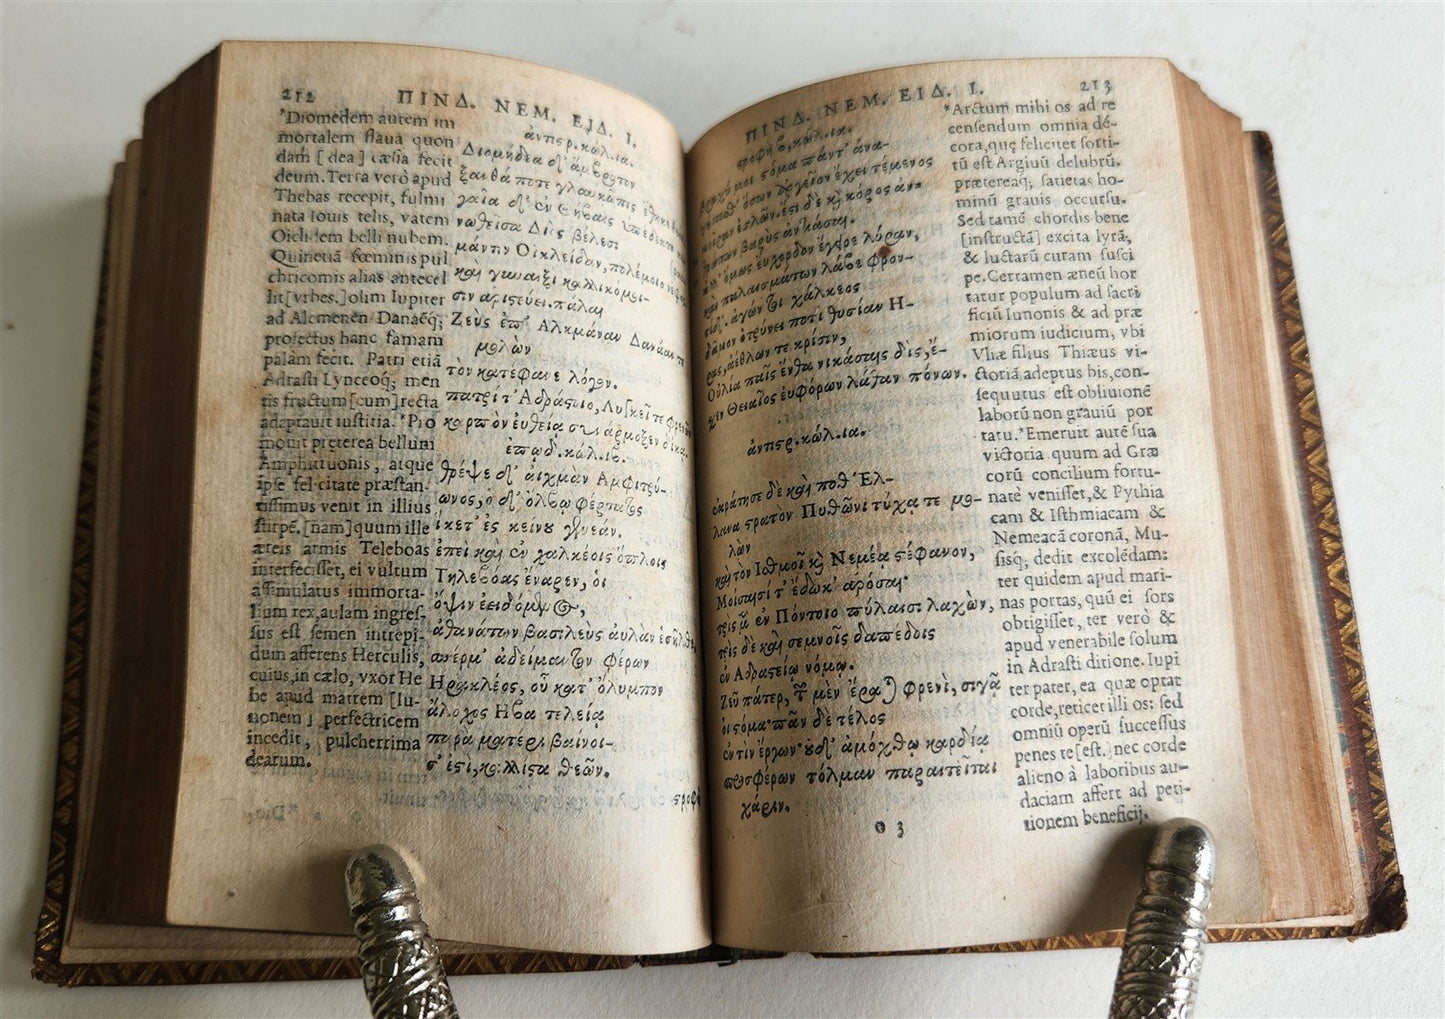 212
ΠΙΝΔ. ΝΕΜ. ΕΙΔ. Ι.
*Diomedem autem im
mortalem flaua quon
dam [dea] cæsia fecit
deum. Terra verò apud
Thebas recepit, fulmi
nata Iouis telis, vatem
Oiclidem belli nubem.
Quinetiā fœminis pul
chricomis alias antecel
lit[vrbes.]olim Iupiter
ad Alcmenēn Danaēq;
profectus hanc famam
palàm fecit. Patri etiā
Adrasti Lynceoq; men
tis fructum[cum]recta
adaptauit iustitia. *Pro
mouit prętereà bellum
Amphitruonis, atque
ipse felicitate præstan-
tissimus venit in illius
stirpē.[nam]quum ille
æreis armis Teleboas
interfecisset, ei vultum
assimulatus immorta-
lium rex, aulam ingres-
sus est semen intrepi-
dum afferens Herculis,
cuius, in cælo, vxor He
be apud matrem [Iu-
nonem] perfectricem
incedit, pulcherrima
dearum.
ἀντιστρ. κώλ. ια.
Διομήδεα δ' ἄμβροτον
ξανθά ποτε γλαυκῶπις ἔθηκε
γαῖα δ' ἐν Θήβαις ὑπέδεκτο
νωθεῖσα Διὸς βέλεσι
μάντιν Οἰκλείδαν, πολέμοιο νέφος
καὶ γυναιξὶ καλλικόμοι-
σιν ἀριστεύει. πάλαι
Ζεὺς ἐπ' Αλκμάναν Δανάαν τε
μολὼν
τὸν κατέφανε λόγον.
πατρί τ' Αδράστοιο, Λυγκεῖ τε φρενῶν
καρπὸν εὐθείᾳ συνάρμοξεν δίκᾳ.
ἐπῳδ. κώλ. ιβ.
θρέψε δ' αἰχμὰν Αμφιτρύ-
ωνος, ὁ δ' ὄλβῳ φέρτατος
ἵκετ' ἐς κείνου γενεάν.
ἐπεὶ καὶ ἐν χαλκέοις ὅπλοις
Τηλεβόας ἔναρεν, οἱ
ὄψιν ἐειδόμενος,
ἀθανάτων βασιλεὺς αὐλὰν ἐσῆλθε,
σπέρμ' ἀδείμαντον φέρων
Ηρακλέος, οὗ κατ' ὄλυμπον
ἄλοχος Ηβα τελείᾳ
παρὰ ματέρι βαίνοι-
σ' ἐστι, καλλίστα θεῶν.
στροφὴ
ΠΙΝΔ. ΝΕΜ. ΕΙΔ. Ι.
213
στροφὴ ὁ, κώλ. ια.
Βραχύ μοι στόμα πάντ' ἀνα-
γήσασθ' ὅσων ἀργεῖον ἔχει τέμενος
μοῖραν ἐσλῶν. ἔστι δὲ καὶ κόρος ἀν-
θρώπων βαρὺς ἀντιάσαι.
ἀλλ' ὅμως εὔχορδον ἔγειρε λύραν,
καὶ παλαισμάτων λάβε φρον-
τίδ'. ἀγών τοι χάλκεος
δᾶμον ὀτρύνει ποτὶ θυσίαν Η-
ρας, ἀέθλων τε κρίσιν,
Οὐλία παῖς ἔνθα νικάσαις δὶς, ἔ-
σχεν Θειαῖος εὐφόρων λάθαν πόνων.
ἀντιστρ. κώλ. ια.
ἐκράτησε δὲ καὶ ποθ' Ελ-
λανα στρατὸν Πυθῶνι τύχᾳ τε μο-
λὼν
καὶ τὸν Ισθμοῖ καὶ Νεμέᾳ στέφανον,
Μοίσαισί τ' ἔδωκ' ἀρόσαι·
τρὶς μὲν ἐν Πόντοιο πύλαισι λαχὼν,
τρὶς δὲ καὶ σεμνοῖς δαπέδοις
ἐν Αδραστείῳ νόμῳ.
Ζεῦ πάτερ, τῶν μὲν ἔραται φρενὶ, σιγᾷ
οἱ στόμα· πᾶν δὲ τέλος
ἐν τὶν ἔργων· οὐδ' ἀμόχθῳ καρδίᾳ
προσφέρων τόλμαν παραιτεῖται
χάριν.
*Arctum mihi os ad re
censendum omnia dé-
cora, quę feliciter sorti-
tū est Argiuū delubrū.
prætereaq; satietas ho-
minū grauis occursu.
Sed tamē chordis bene
[instructā] excita lyrā,
& luctarū curam susci
pe. Certamen æneū hor
tatur populum ad sacri
ficiū Iunonis & ad præ
miorum iudicium, vbi
Vliæ filius Thiæus vi-
ctoriā adeptus bis, con-
sequutus est obliuionē
laborū non grauiū por
tatu. *Emeruit autē sua
victoria quum ad Græ
corū concilium fortu-
natè venisset, & Pythia
cam & Isthmiacam &
Nemeacā coronā, Mu-
sisq; dedit excolēdam:
ter quidem apud mari-
nas portas, quū ei sors
obtigisset, ter verò &
apud venerabile solum
in Adrasti ditione. Iupi
ter pater, ea quæ optat
corde, reticet illi os: sed
omniū operū successus
penes te[est.] nec corde
alieno à laboribus au-
daciam affert ad peti-
tionem beneficij.
o 3